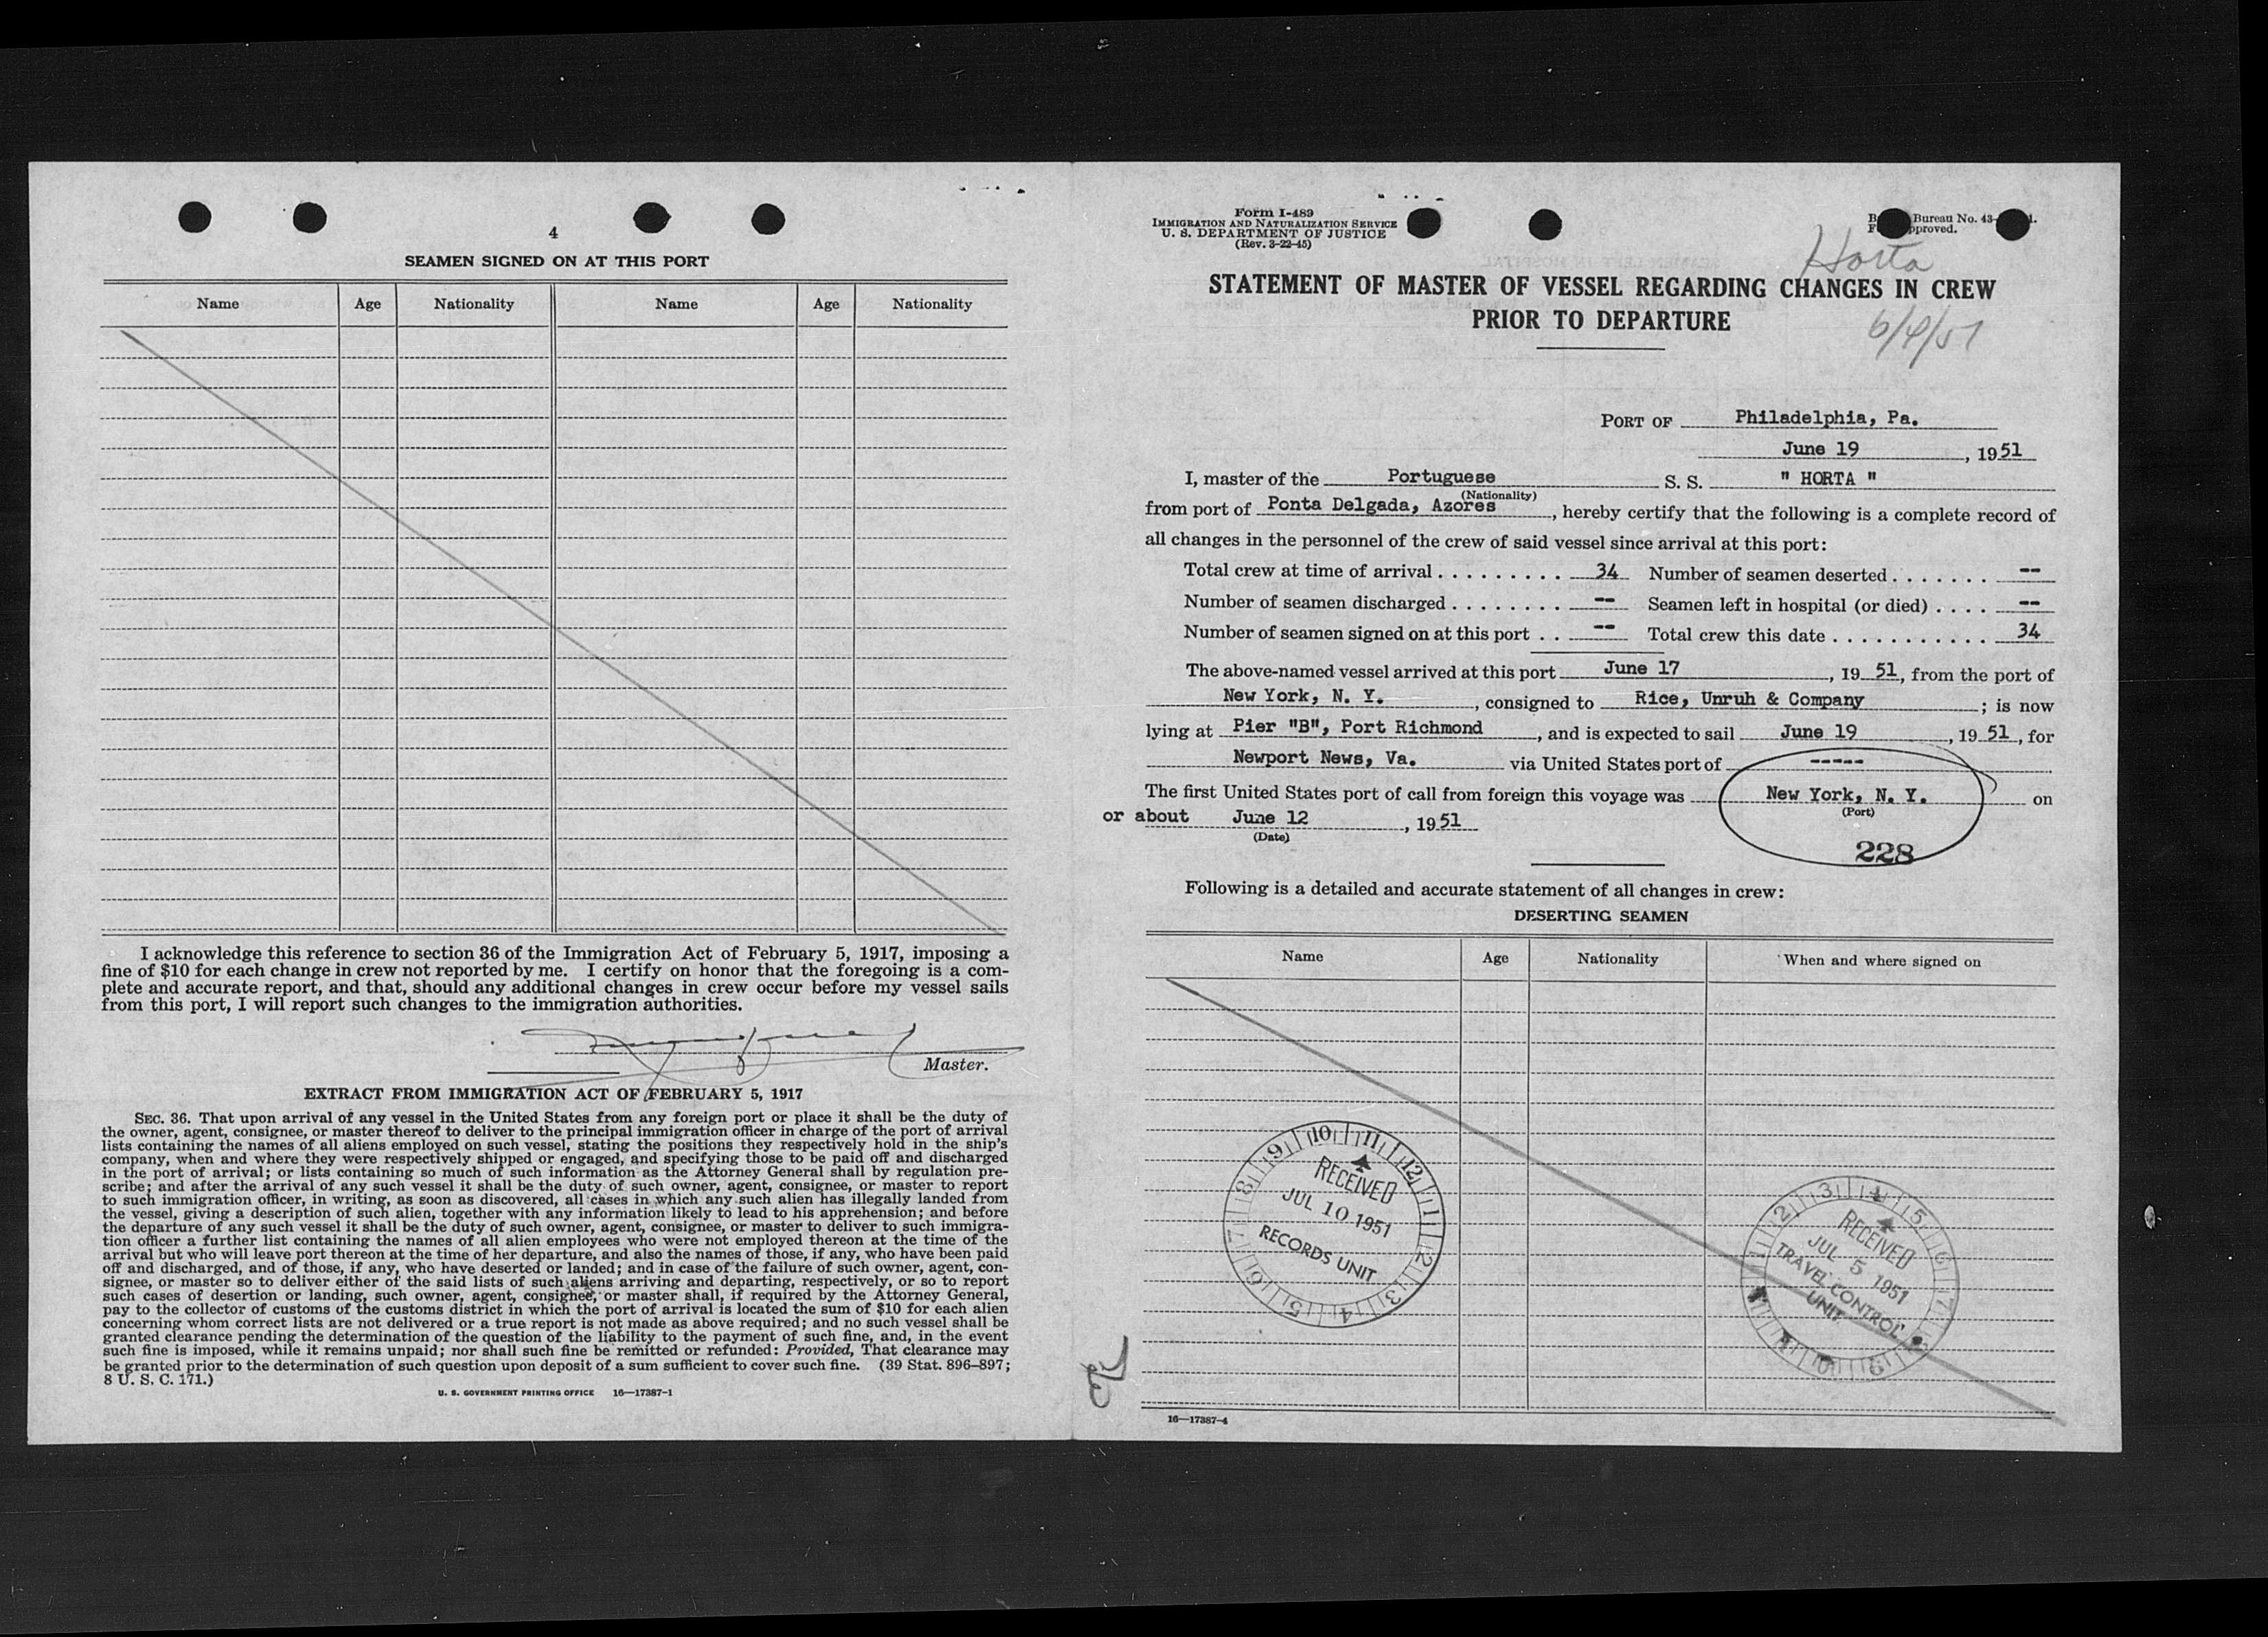 4
SEAMEN SIGNED ON AT THIS PORT
Name Age Nationality Name Age Nationality
I acknowledge this reference to section 36 of the Immigration Act of February 5, 1917, imposing a
fine of $10 for each change in crew not reported by me. I certify on honor that the foregoing is a com-
plete and accurate report, and that, should any additional changes in crew occur before my vessel sails
from this port, I will report such changes to the immigration authorities.
Master.
EXTRACT FROM IMMIGRATION ACT OF FEBRUARY 5, 1917
SEC. 36. That upon arrival of any vessel in the United States from any foreign port or place it shall be the duty of
the owner, agent, consignee, or master thereof to deliver to the principal immigration officer in charge of the port of arrival
lists containing the names of all aliens employed on such vessel, stating the positions they respectively hold in the ship's
company, when and where they were respectively shipped or engaged, and specifying those to be paid off and discharged
in the port of arrival; or lists containing so much of such information as the Attorney General shall by regulation pre-
scribe; and after the arrival of any such vessel it shall be the duty of such owner, agent, consignee, or master to report
to such immigration officer, in writing, as soon as discovered, all cases in which any such alien has illegally landed from
the vessel, giving a description of such alien, together with any information likely to lead to his apprehension; and before
the departure of any such vessel it shall be the duty of such owner, agent, consignee, or master to deliver to such immigra-
tion officer a further list containing the names of all alien employees who were not employed thereon at the time of the
arrival but who will leave port thereon at the time of her departure, and also the names of those, if any, who have been paid
off and discharged, and of those, if any, who have deserted or landed; and in case of the failure of such owner, agent, con-
signee, or master so to deliver either of the said lists of such aliens arriving and departing, respectively, or so to report
such cases of desertion or landing, such owner, agent, consignee, or master shall, if required by the Attorney General,
pay to the collector of customs of the customs district in which the port of arrival is located the sum of $10 for each alien
concerning whom correct lists are not delivered or a true report is not made as above required; and no such vessel shall be
granted clearance pending the determination of the question of the liability to the payment of such fine, and, in the event
such fine is imposed, while it remains unpaid; nor shall such fine be remitted or refunded: Provided, That clearance may
be granted prior to the determination of such question upon deposit of a sum sufficient to cover such fine. (39 Stat. 896–897;
8 U. S. C. 171.)
U. S. GOVERNMENT PRINTING OFFICE 16—17387-1
Form I-489
IMMIGRATION AND NATURALIZATION SERVICE
U. S. DEPARTMENT OF JUSTICE
(Rev. 3-22-45)
Bureau No. 43-
Horta
STATEMENT OF MASTER OF VESSEL REGARDING CHANGES IN CREW
PRIOR TO DEPARTURE
PORT OF Philadelphia, Pa.
June 19, 1951
I, master of the Portuguese S. S. " HORTA "
(Nationality)
from port of Ponta Delgada, Azores, hereby certify that the following is a complete record of
all changes in the personnel of the crew of said vessel since arrival at this port:
Total crew at time of arrival . . . . . . . . . . 34 Number of seamen deserted . . . . . . . --
Number of seamen discharged . . . . . . . . -- Seamen left in hospital (or died) . . . . --
Number of seamen signed on at this port . . -- Total crew this date . . . . . . . . . . . . 34
The above-named vessel arrived at this port June 17, 1951, from the port of
New York, N. Y., consigned to Rice, Unruh & Company; is now
lying at Pier "B", Port Richmond, and is expected to sail June 19, 1951, for
Newport News, Va. via United States port of -----
The first United States port of call from foreign this voyage was New York, N. Y. on
(Port)
or about June 12, 1951
(Date)
228
Following is a detailed and accurate statement of all changes in crew:
DESERTING SEAMEN
Name Age Nationality When and where signed on
RECEIVED
JUL 10 1951
RECORDS UNIT
RECEIVED
JUL 5 1951
TRAVEL CONTROL
UNIT
16—17387-4